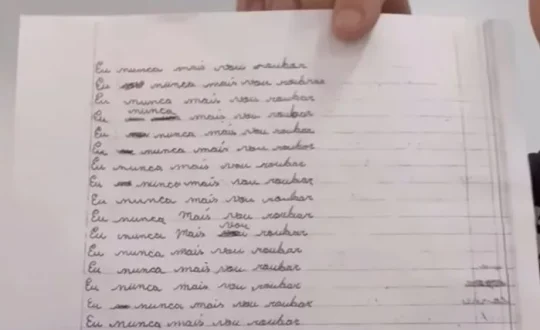 Eu nunca mais vou roubar
Eu nunca mais vou roubar
Eu nunca mais vou roubar
nunca
Eu mais vou roubar
Eu nunca mais vou roubar
Eu nunca mais vou roubar
Eu nunca mais vou roubar
Eu nunca mais vou roubar
Eu nunca mais vou roubar
Eu nunca Mais vou roubar
vou
Eu nunca Mais roubar
Eu nunca mais vou roubar
Eu nunca mais vou roubar
Eu nunca mais vou roubar
Eu nunca mais vou roubar
Eu nunca mais vou roubar